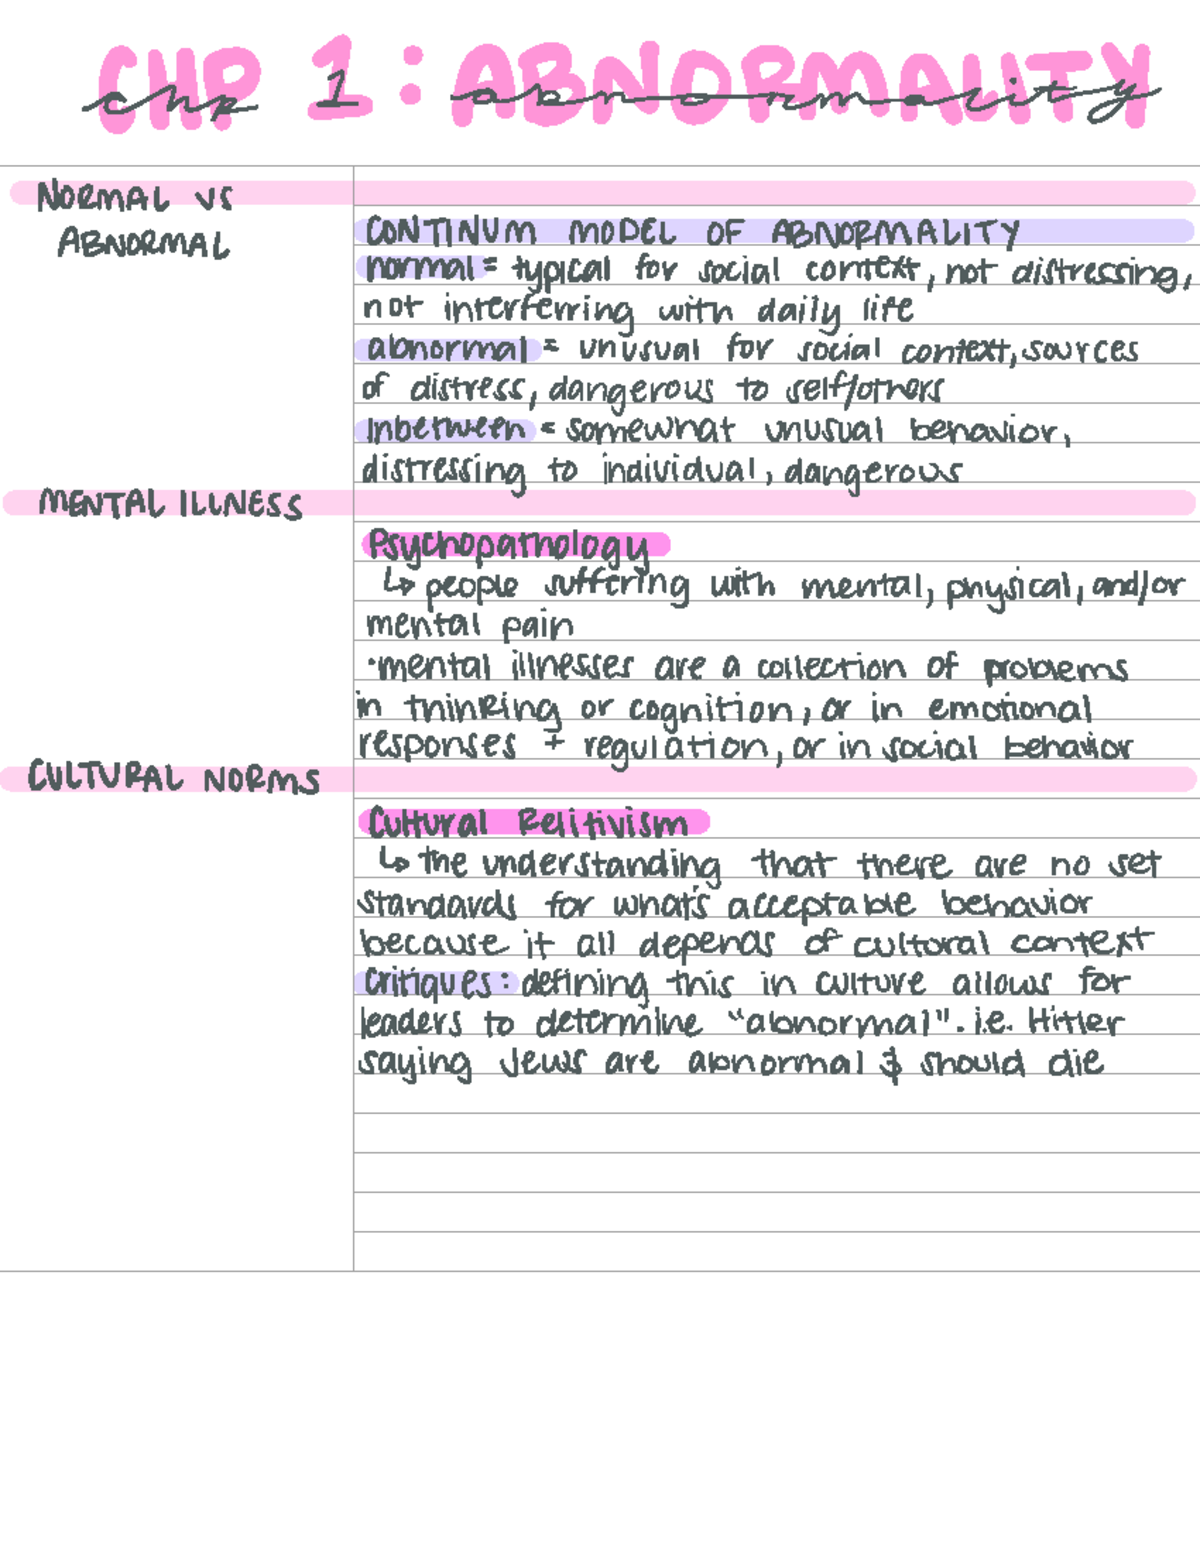 CHP 1 : ABNORMALITY
chp 1 abnormality
NORMAL VS
ABNORMAL
CONTINUM MODEL OF ABNORMALITY
normal = typical for social context, not distressing,
not interferring with daily life
abnormal = unusual for social context, sources
of distress, dangerous to self/others
Inbetween = somewhat unusual behavior,
distressing to individual, dangerous
MENTAL ILLNESS
Psychopathology
↳ people suffering with mental, physical, and/or
mental pain
·mental illnesses are a collection of problems
in thinking or cognition, or in emotional
responses + regulation, or in social behavior
CULTURAL NORMS
Cultural Relitivism
↳ the understanding that there are no set
standards for what's acceptable behavior
because it all depends of cultoral context
Critiques: defining this in culture allows for
leaders to determine "abnormal". i.e. Hitler
saying Jews are abnormal & should die